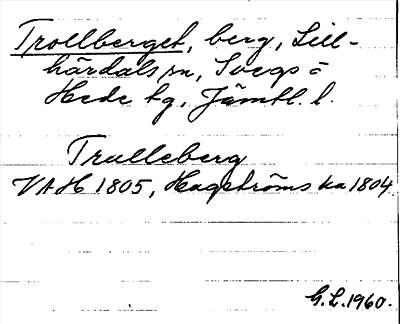 Trollberget, berg, Lill-
härdals sn, Svegs o
Hede tg, Jämtl. l.
Trulleberg
VAH 1805, Hagströms ka 1804
G.L. 1960.